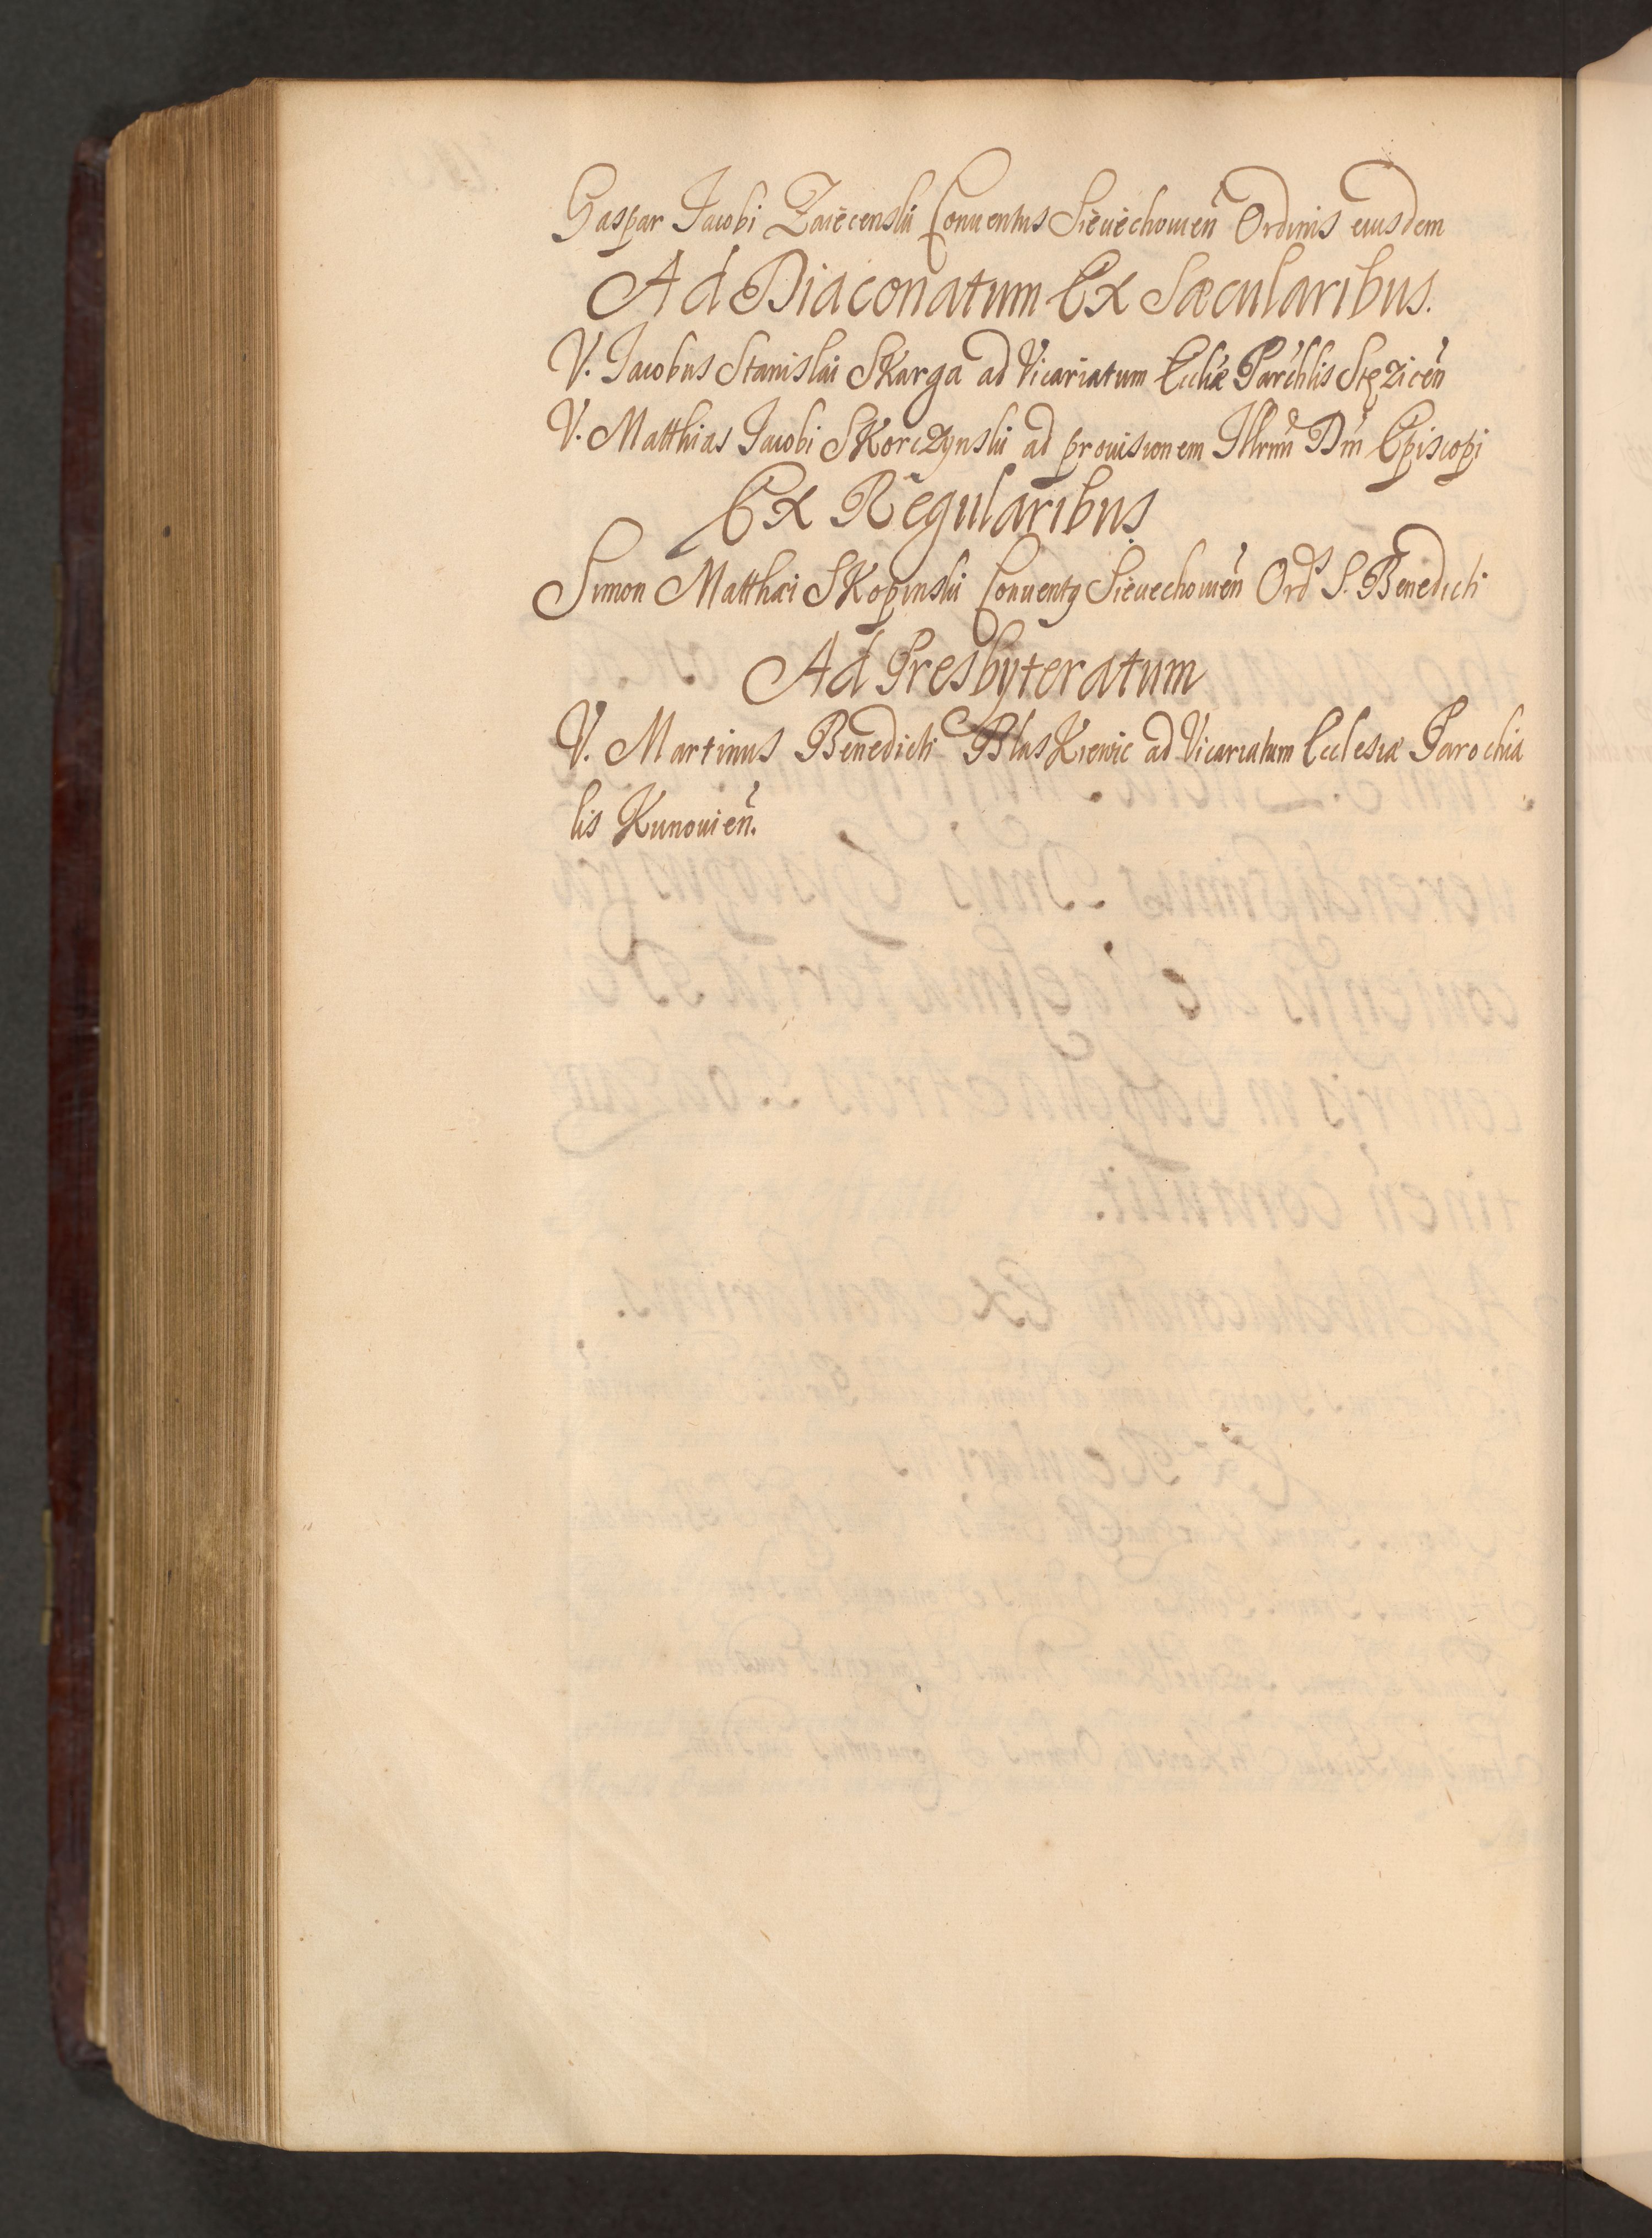 Gaspar Jacobi Zaiecenski Conuentus Sieuechouien̄ Ordinis eiusdem
Ad Diaconatum Ex Sæcularibus.
V. Jacobus Stanislai Skarga ad Vicariatum Eccliæ Parchlis Stęzicen̄
V. Matthias Jacobi Skorczynski ad prouisionem Illrm̄i Dn̄i Episcopi
Ex Regularibus.
Simon Matthæi Skopinski Conuentꝯ Sieuechouien̄ Ordīs S. Benedicti
Ad Presbyteratum
V. Martinus Benedicti Blaskiewic ad Vicariatum Ecclesiæ Parochia
lis Kunouien̄.